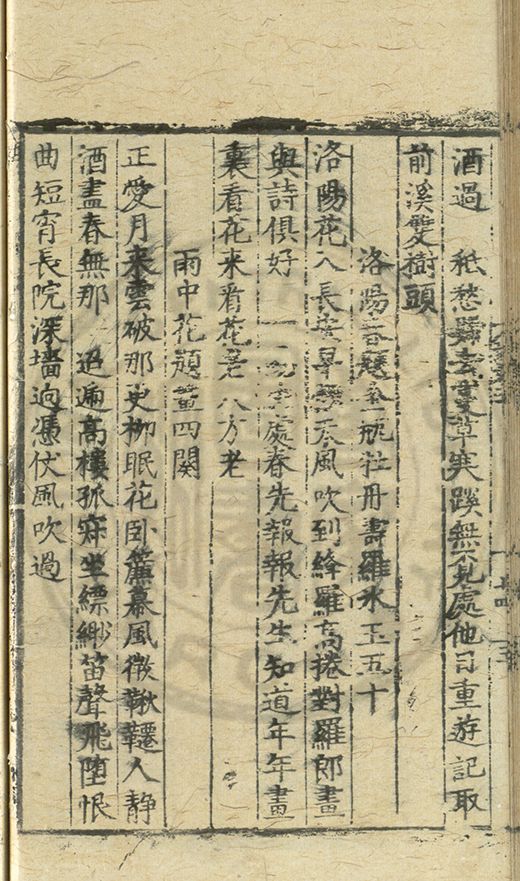 酒過　秖愁歸去蔓草寒蹊無不見處他日重遊記取
前溪雙樹頭
洛陽春題　瓶牡丹壽羅氷玉五十
洛陽花入長安早　風吹到絳羅高捲對羅郎畫
與詩俱好　一　處春先報報先生知道年年畫
裏看花來看花　八方老
雨中花題　四闋
正愛月來雲破那更柳眠花卧簾幕風微鞦韆人静
酒盡春無那　迢遞高樓孤寂坐縹緲笛聲飛堕恨
曲短宵長院深墻逈憑伏風吹過